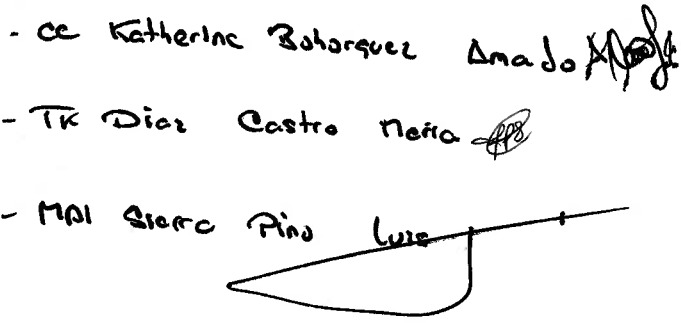 - CC Katherine Bohorquez Amado
- TK Diaz Castro Maria
- MDI Sierra Pino Luis